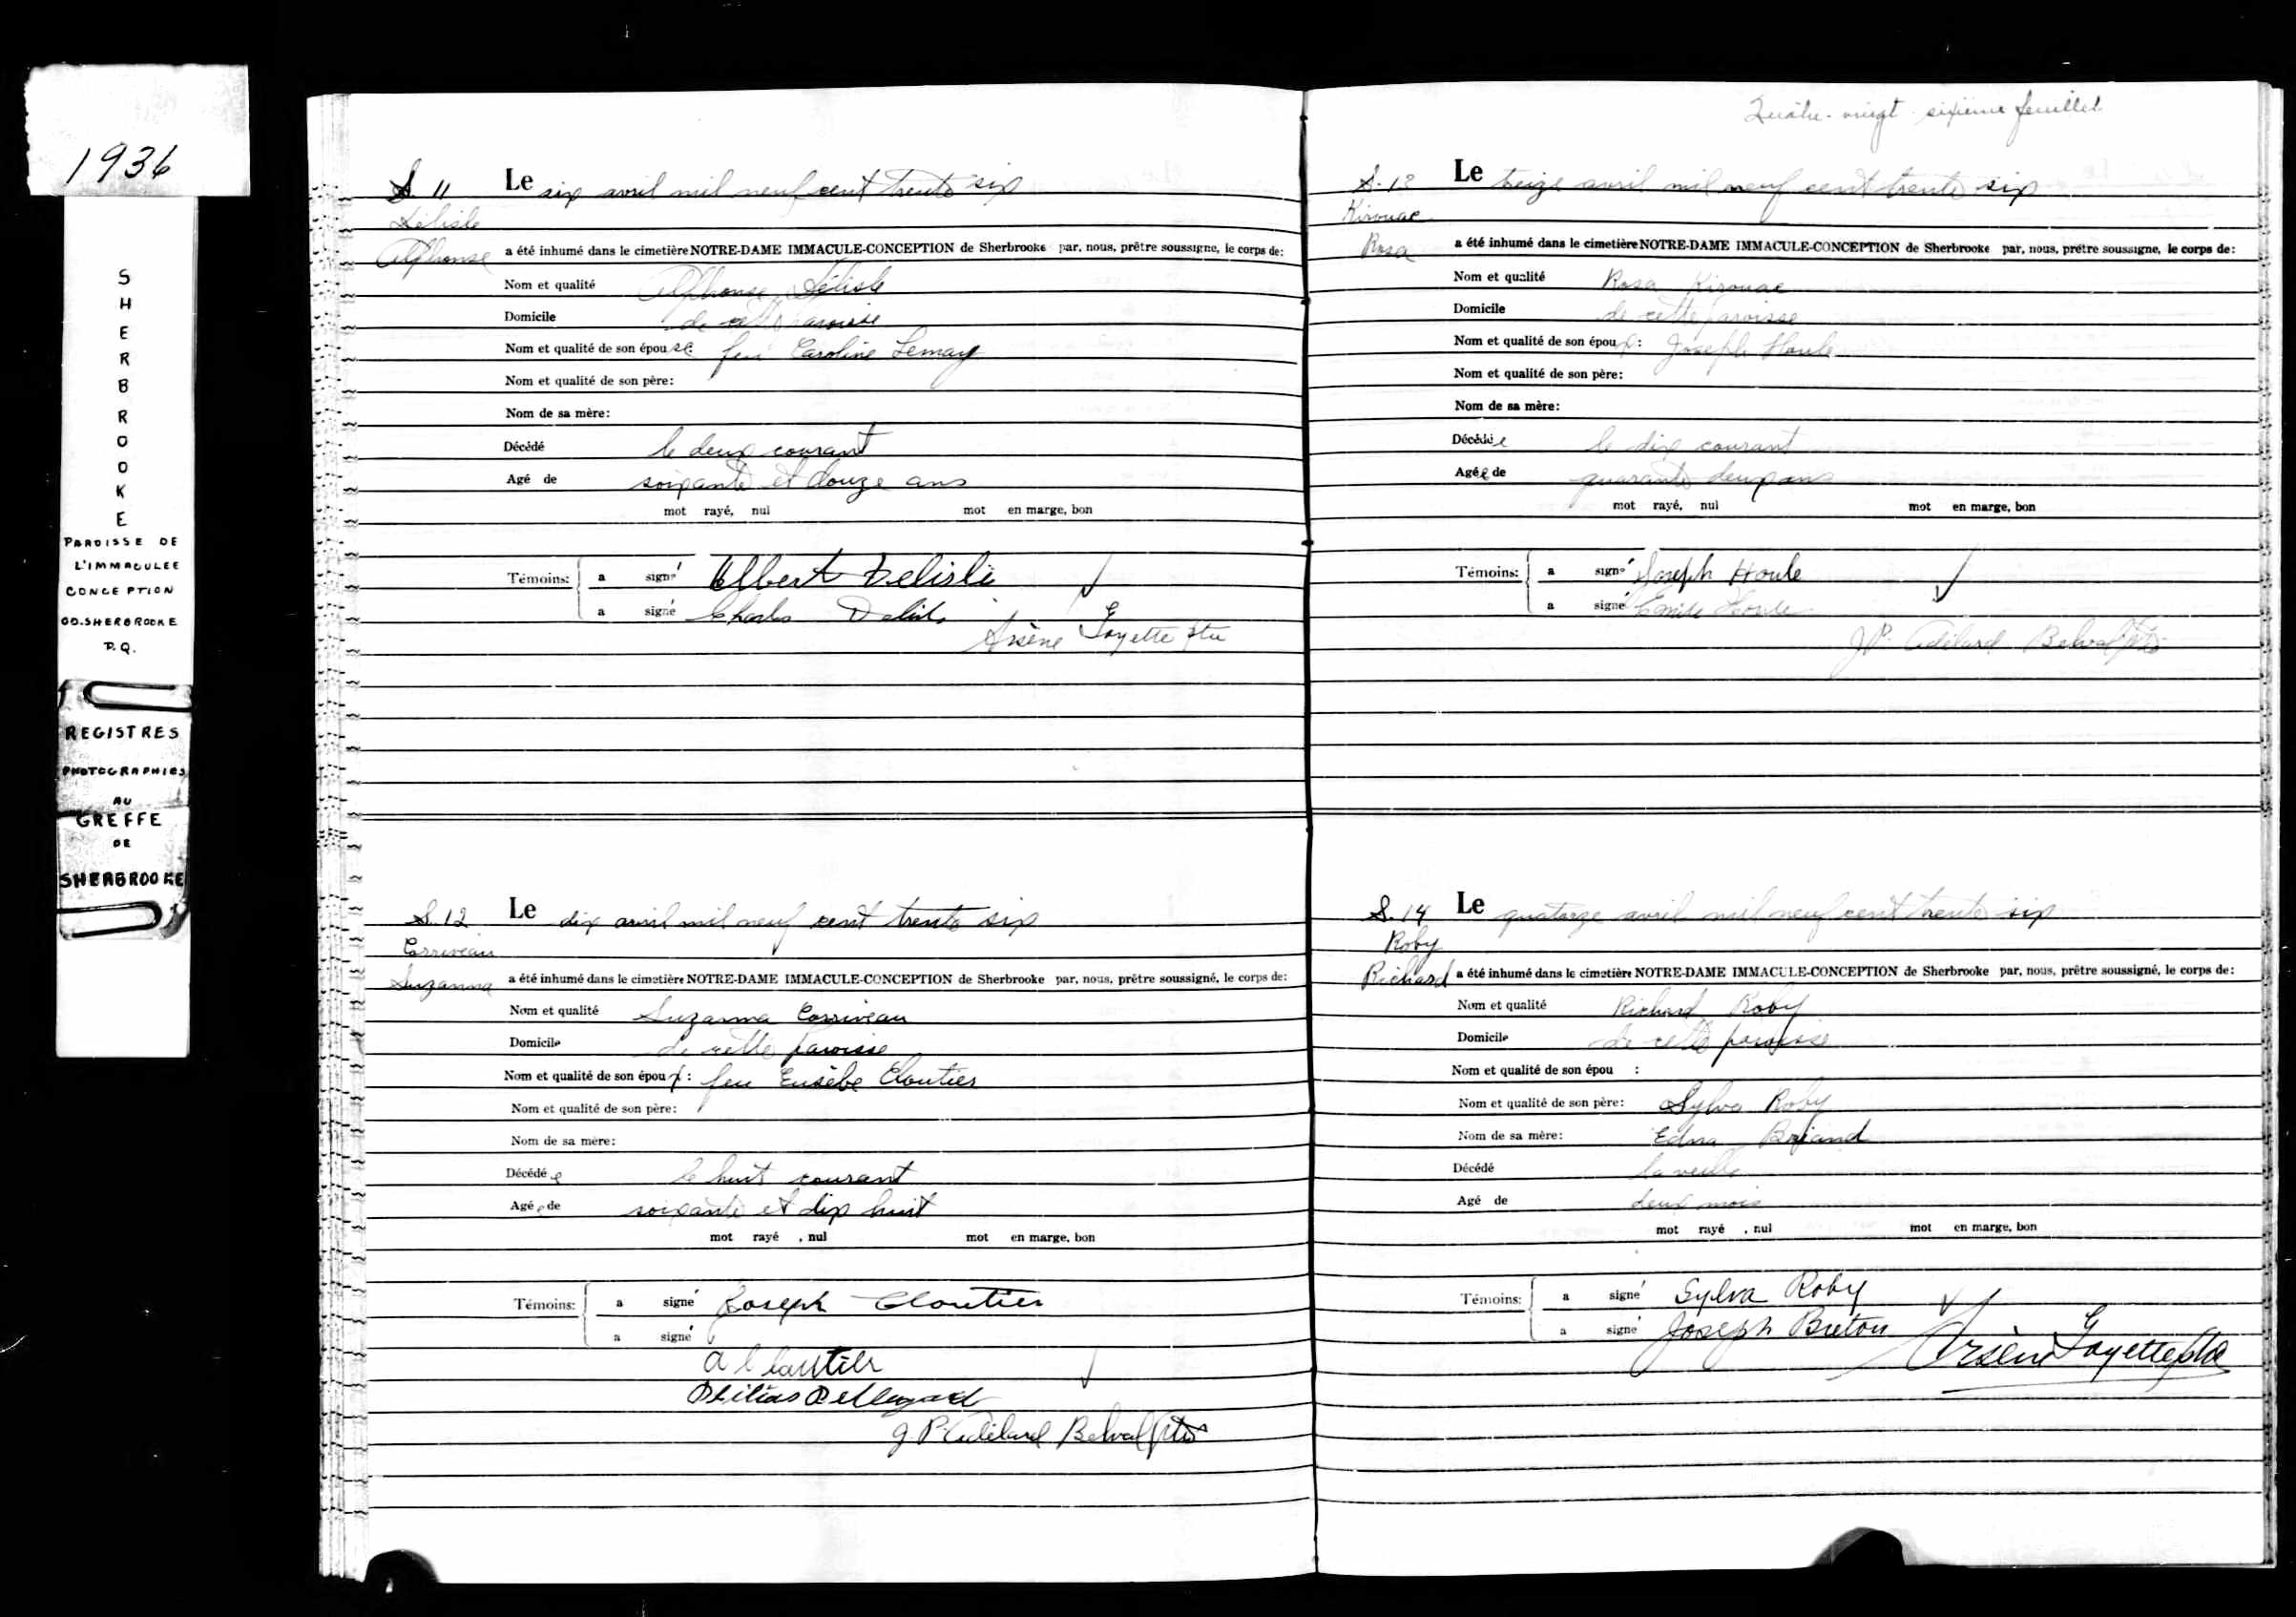 1936
SHERBROOKE
PAROISSE DE
L'IMMACULEE
CONCEPTION
CO.SHERBROOKE
P.Q.
REGISTRES
PHOTOGRAPHIES
AU
GREFFE
DE
SHERBROOKE
S. 11
Delisle
Alphonse
Le six avril mil neuf cent trente six
a été inhumé dans le cimetière NOTRE-DAME IMMACULE-CONCEPTION de Sherbrooke par, nous, prêtre soussigne, le corps de:
Nom et qualité Alphonse Delisle
Domicile de cette paroisse
Nom et qualité de son épouse: feu Caroline Lemay
Nom et qualité de son père:
Nom de sa mère:
Décédé le deux courant
Agé de soixante et douze ans
mot rayé, nul mot en marge, bon
Témoins: a signé Albert Delisle
a signé Charles Delisle
Arsène Goyette ptre
S. 12
Corriveau
Suzanna
Le dix avril mil neuf cent trente six
a été inhumé dans le cimetière NOTRE-DAME IMMACULE-CONCEPTION de Sherbrooke par, nous, prêtre soussigné, le corps de:
Nom et qualité Suzanna Corriveau
Domicile de cette paroisse
Nom et qualité de son époux: feu Eusèbe Cloutier
Nom et qualité de son père:
Nom de sa mère:
Décédée le huit courant
Agée de soixante et dix huit
mot rayé, nul mot en marge, bon
Témoins: a signé Joseph Cloutier
a signé
A Cloutier
J. P. Adélard Belval ptre
Quatre-vingt sixième feuillet
S. 13
Kirouac
Rosa
Le treize avril mil neuf cent trente six
a été inhumé dans le cimetière NOTRE-DAME IMMACULE-CONCEPTION de Sherbrooke par, nous, prêtre soussigne, le corps de:
Nom et qualité Rosa Kirouac
Domicile de cette paroisse
Nom et qualité de son époux: Joseph Houle
Nom et qualité de son père:
Nom de sa mère:
Décédée le dix courant
Agée de quarante deux ans
mot rayé, nul mot en marge, bon
Témoins: a signé Joseph Houle
a signé Emile Houle
J. P. Adélard Belval ptre
S. 14
Roby
Richard
Le quatorze avril mil neuf cent trente six
a été inhumé dans le cimetière NOTRE-DAME IMMACULE-CONCEPTION de Sherbrooke par, nous, prêtre soussigné, le corps de:
Nom et qualité Richard Roby
Domicile de cette paroisse
Nom et qualité de son épou :
Nom et qualité de son père: Sylva Roby
Nom de sa mère: Edna Briand
Décédé la veille
Agé de deux mois
mot rayé, nul mot en marge, bon
Témoins: a signé Sylva Roby
a signé Joseph Breton
Arsène Goyette ptre